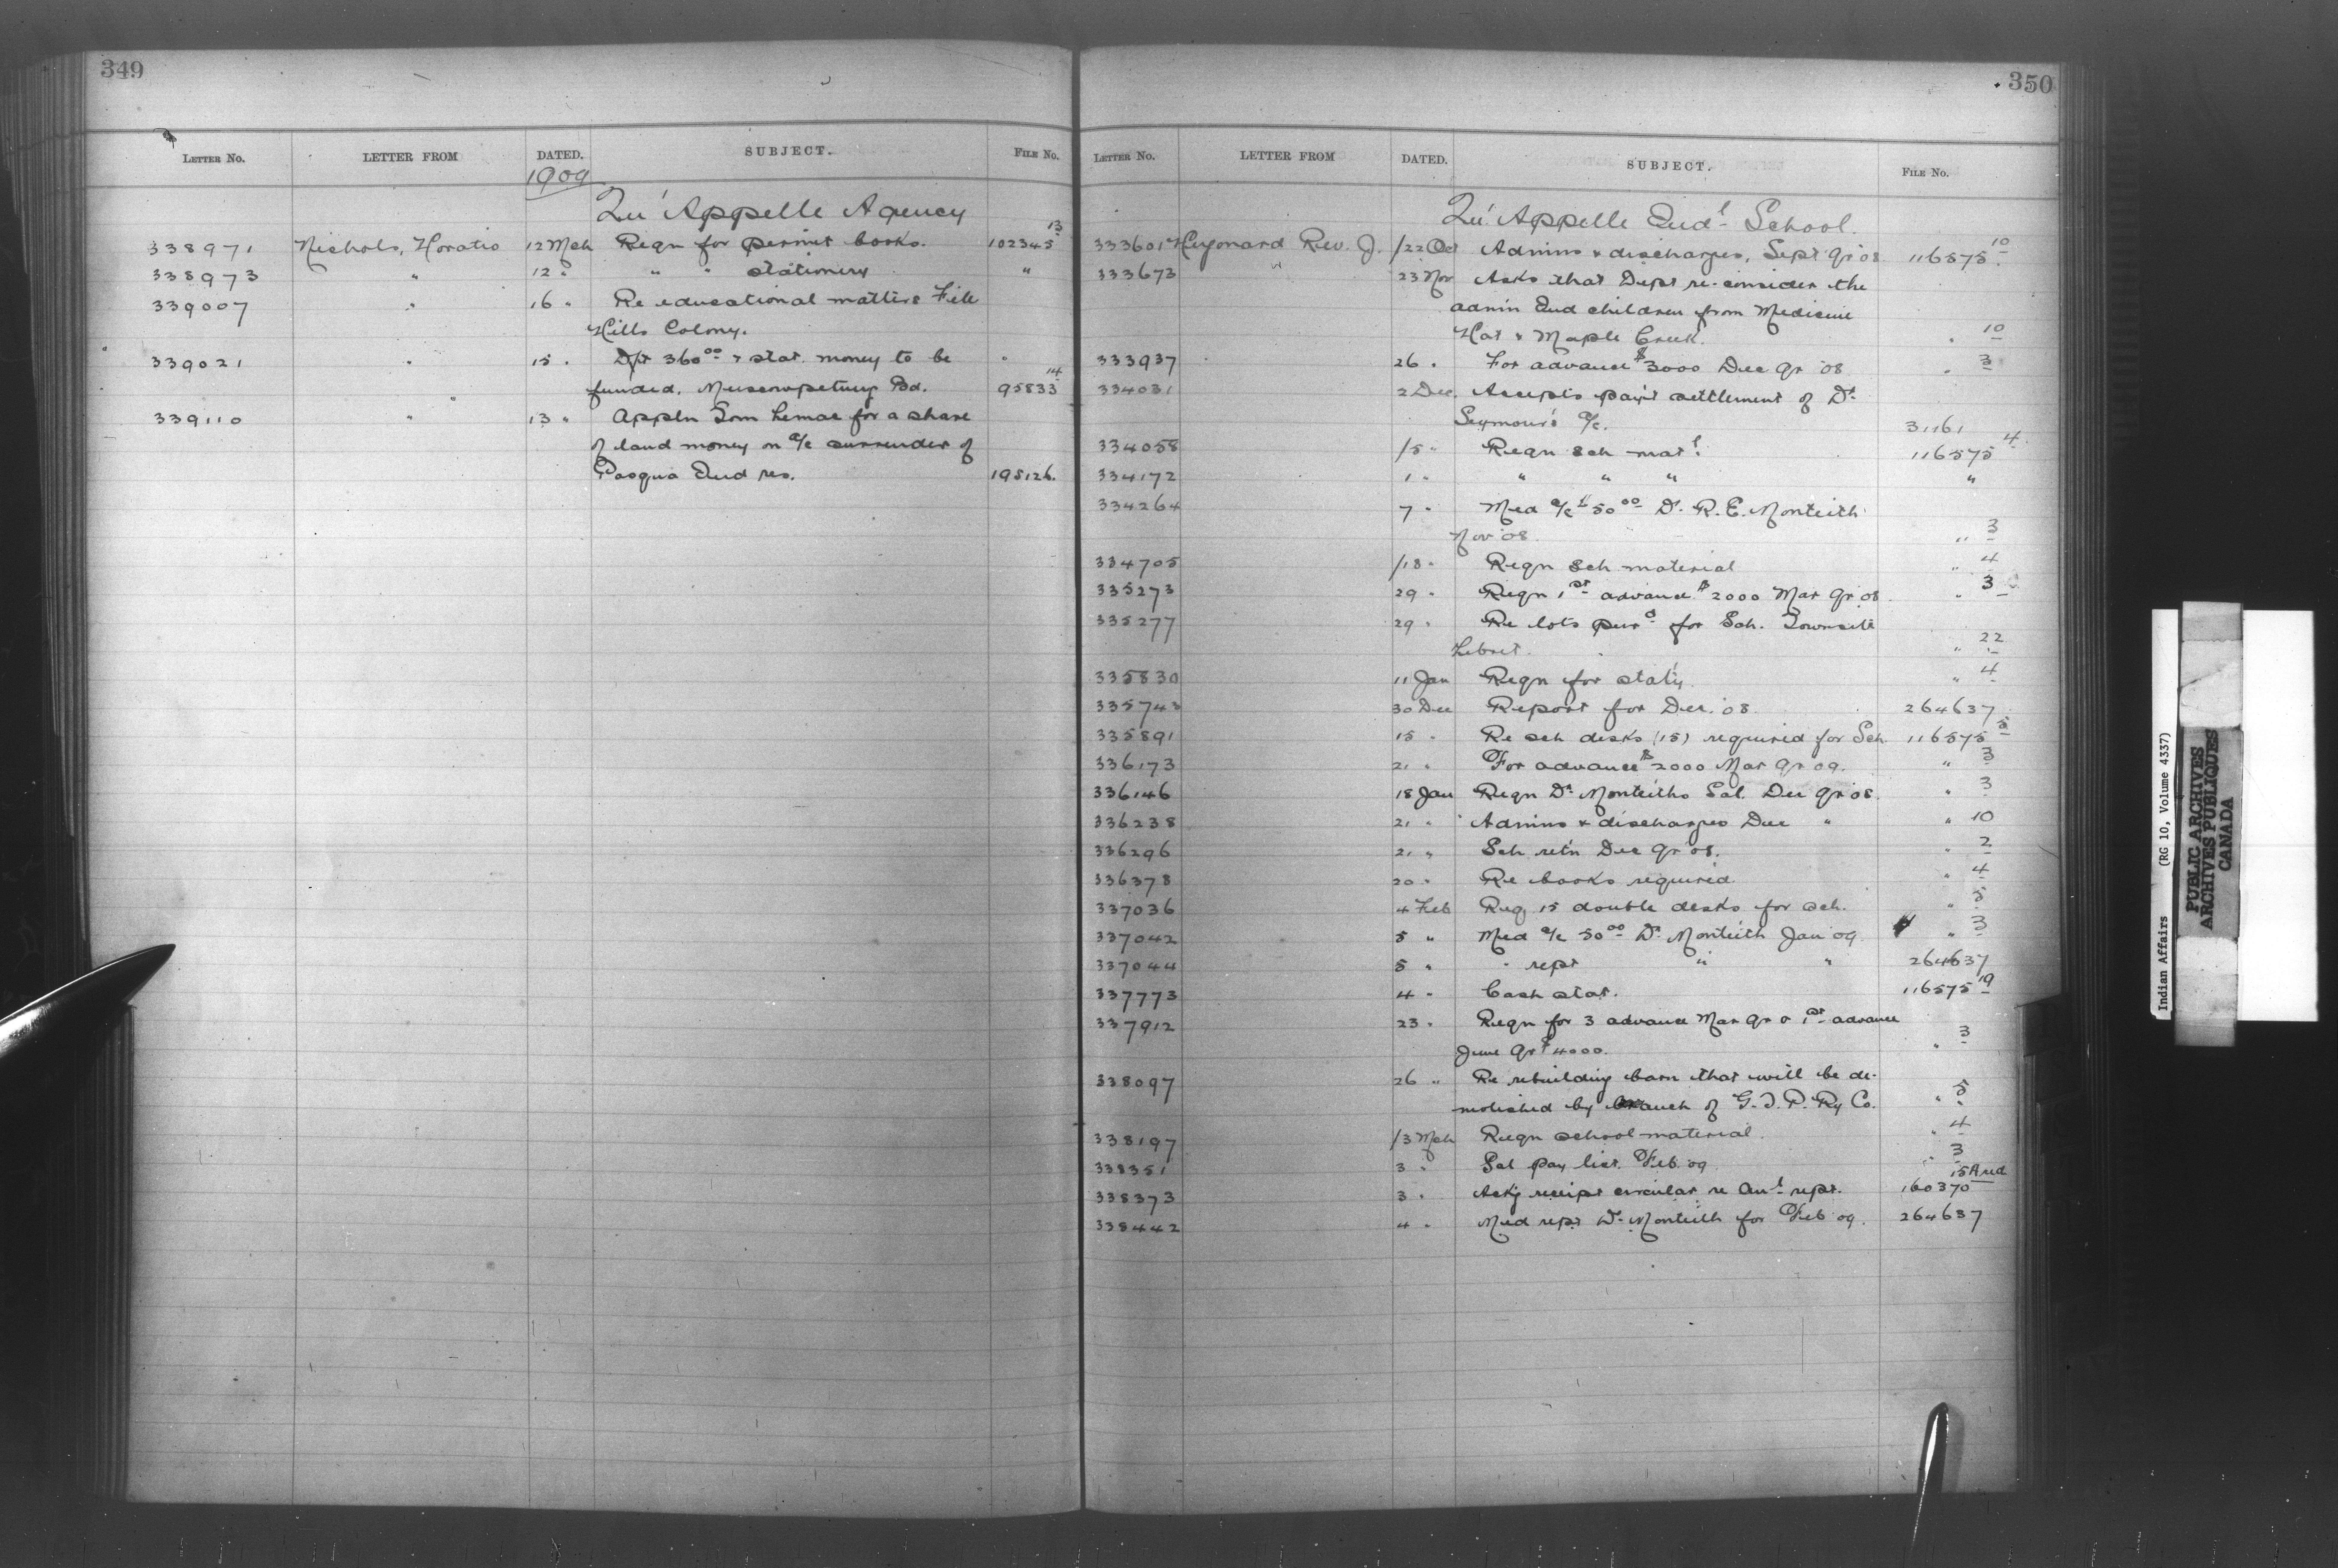 349
LETTER No. LETTER FROM DATED. SUBJECT. FILE No.
1909
Qu'Appelle Agency
338971 Nichols, Horatio 12 Mch Reqn for permit books. 102345 13
338973 " 12 " " " stationery "
339007 " 16 " Re educational matters File
Hills Colony. "
339021 " 15 " Dft 360.00 & stat. money to be
funded. Muscowpetung Bd. 95833 14
339110 " 13 " Appln Tom Lemac for a share
of land money on a/c surrender of
Pasqua Ind res. 195126.
350
LETTER No. LETTER FROM DATED. SUBJECT. FILE No.
Qu'Appelle Indl School.
333601 Hugonard Rev. J. /22 Oct Admins & discharges, Sept qr 08 116575 10
333673 " 23 Nov Asks that Dept re-consider the
admin Ind children from Medicine
Hat & Maple Creek. " 10
333937 26 " For advance $3000 Dec qr 08 " 3
334031 2 Dec. Accepts pay't settlement of Dr
Seymour's a/c. 31161
334058 /5 " Reqn sch matl 116575 4
334172 1 " " " " "
334264 7 " Med a/c $50.00 Dr. R. E. Monteith
Nov '08. " 3
334705 /18 " Reqn sch material " 4
335273 29 " Reqn 1st advance $2000 Mar qr 08. " 3
335277 29 " Re lots purd for Sch. Townsite
Lebret. " 22
335830 11 Jan Reqn for stat'y " 4
335743 30 Dec Report for Dec. '08. 264637
335891 15 " Re sch desks (15) required for Sch 116575 5
336173 21 " For advance $2000 Mar qr 09. " 3
336146 18 Jan Reqn Dr Monteiths Sal. Dec qr 08. " 3
336238 21 " Admins & discharges Dec " " 10
336296 21 " Sch ret'n Dec qr 08. " 2
336378 20 " Re books required " 4
337036 4 Feb Req 15 double desks for sch. " 5
337042 5 " Med a/c 50.00 Dr Monteith Jan 09. " 3
337044 5 " " rept " " 264637
337773 4 " Cash stat. 116575 19
337912 23 " Reqn for 3 advance Mar qr & 1st advance
June qr $4000. " 3
338097 26 " Re rebuilding barn that will be de-
molished by branch of G.T.P. Ry Co. " 5
338197 /3 Mch Reqn school material. " 4
338351 3 " Sal pay list. Feb 09 " 3
338373 3 " Ack'g receipt circular re Anl rept. 160370 15 And
338442 4 " Med rept Dr Monteith for Feb 09. 264637
Indian Affairs (RG 10, Volume 4337)
PUBLIC ARCHIVES
ARCHIVES PUBLIQUES
CANADA